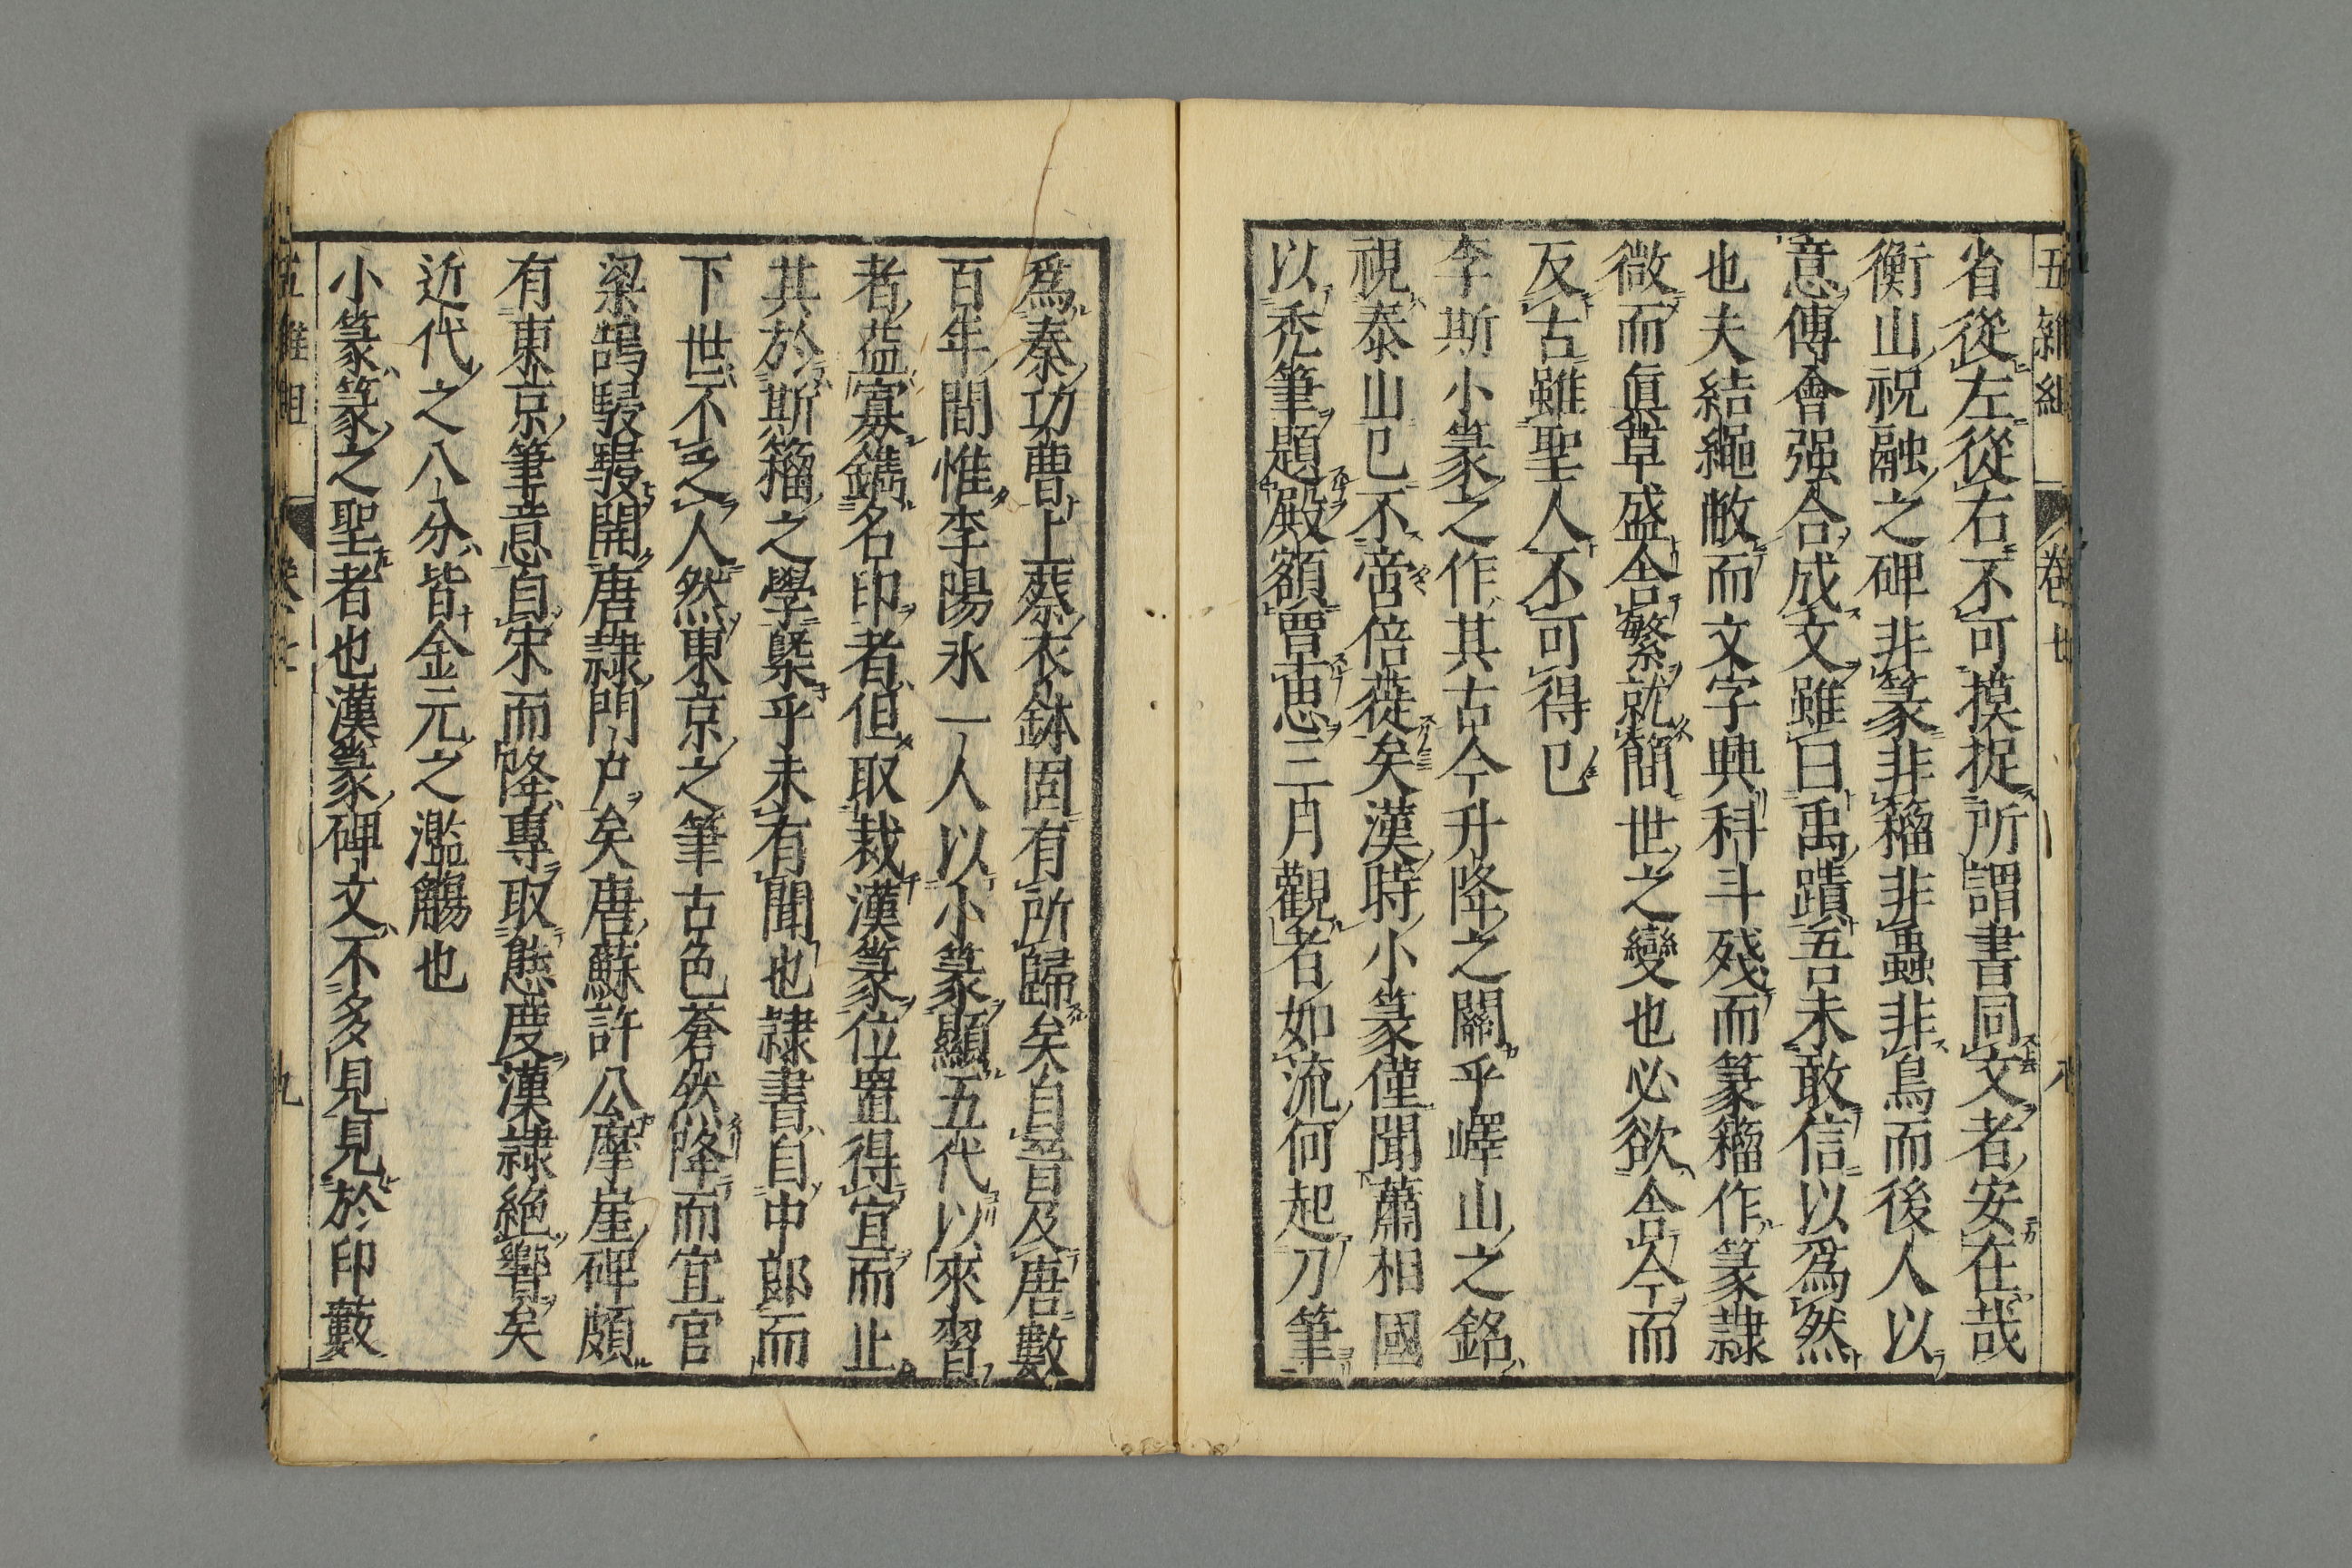 五雜組 卷七 八
省從左從右不可摸捉所謂書同文者安在哉
衡山祝融之碑非篆非籀非蟲非鳥而後人以
意傳會强合成文雖曰禹蹟吾未敢信以爲然
也夫結繩敝而文字興科斗殘而篆籀作篆隷
微而眞草盛舎繁就簡世之變也必欲舎今而
反古雖聖人不可得已
李斯小篆之作其古今升降之關乎嶧山之銘
視泰山已不啻倍蓰矣漢時小篆僅聞蕭相國
以禿筆題殿額曾思三月觀者如流何起刀筆
爲秦功曹上蔡衣鉢固有所歸矣自晉及唐數
百年間惟李陽氷一人以小篆顯五代以來習
者益寡鐫名印者但取裁漢篆位置得宜而止
其於斯籀之學槩乎未有聞也隷書自中郎而
下世不乏人然東京之筆古色蒼然降而宜官
梁鵠駸駸開唐隷門戶矣唐蘇許公摩崖碑頗
有東京筆意自宋而降專取態度漢隷絶響矣
近代之八分皆金元之濫觴也
小篆篆之聖者也漢篆碑文不多見見於印藪
五雜組 卷七 九